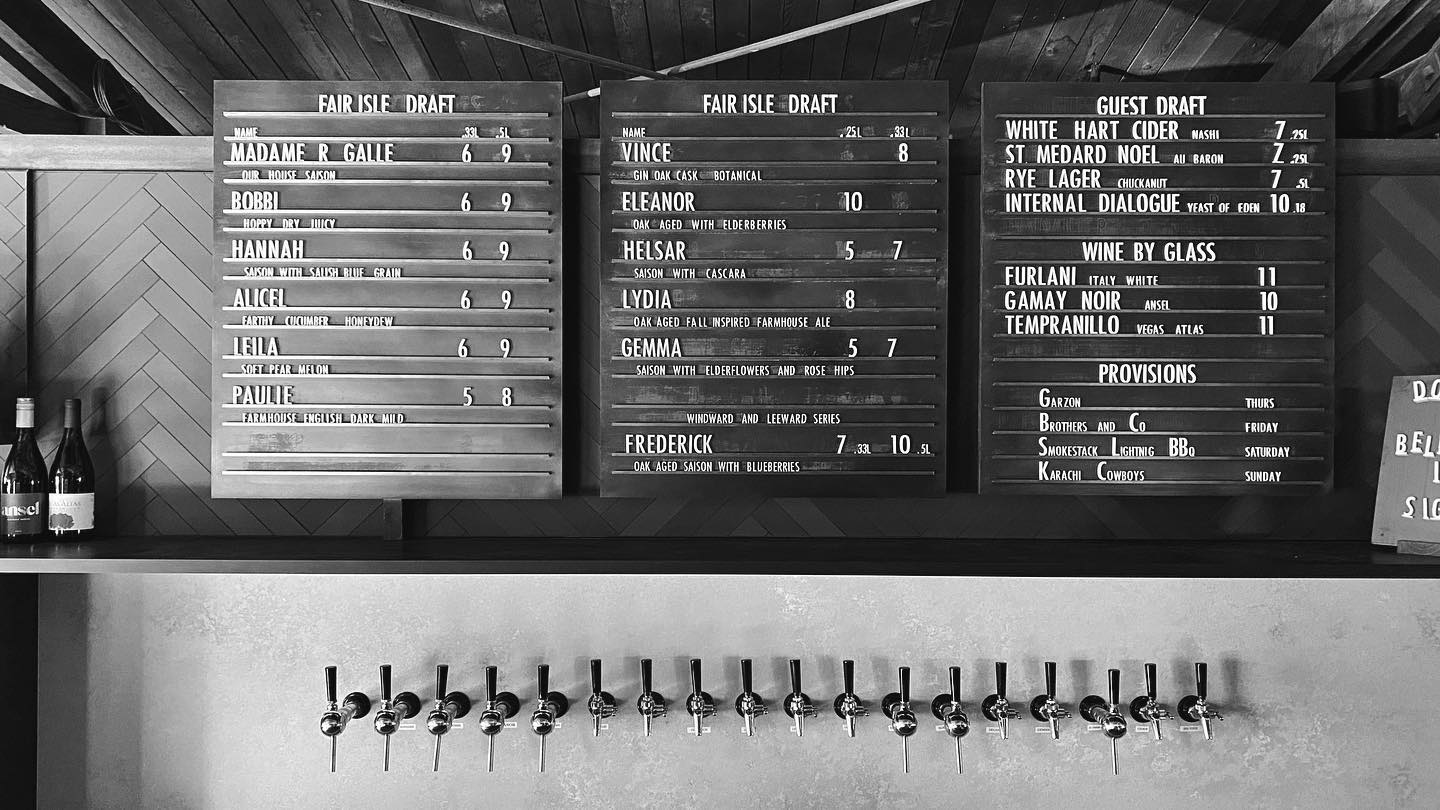 FAIR ISLE DRAFT
NAME .33L .5L
MADAME R GALLE 6 9
OUR HOUSE SAISON
BOBBI 6 9
HOPPY DRY JUICY
HANNAH 6 9
SAISON WITH SALISH BLUE GRAIN
ALICEL 6 9
EARTHY CUCUMBER HONEYDEW
LEILA 6 9
SOFT PEAR MELON
PAULIE 5 8
FARMHOUSE ENGLISH DARK MILD
FAIR ISLE DRAFT
NAME .25L .33L
VINCE 8
GIN OAK CASK BOTANICAL
ELEANOR 10
OAK AGED WITH ELDERBERRIES
HELSAR 5 7
SAISON WITH CASCARA
LYDIA 8
OAK AGED FALL INSPIRED FARMHOUSE ALE
GEMMA 5 7
SAISON WITH ELDERFLOWERS AND ROSE HIPS
WINDWARD AND LEEWARD SERIES
FREDERICK 7 .33L 10 .5L
OAK AGED SAISON WITH BLUEBERRIES
GUEST DRAFT
WHITE HART CIDER NASHI 7 .25L
ST MEDARD NOEL AU BARON 7 .25L
RYE LAGER CHUCKANUT 7 .5L
INTERNAL DIALOGUE YEAST OF EDEN 10 .18
WINE BY GLASS
FURLANI ITALY WHITE 11
GAMAY NOIR ANSEL 10
TEMPRANILLO VEGAS ATLAS 11
PROVISIONS
GARZON THURS
BROTHERS AND CO FRIDAY
SMOKESTACK LIGHTNIG BBQ SATURDAY
KARACHI COWBOYS SUNDAY
ansel
DO
BEL
L
SIG